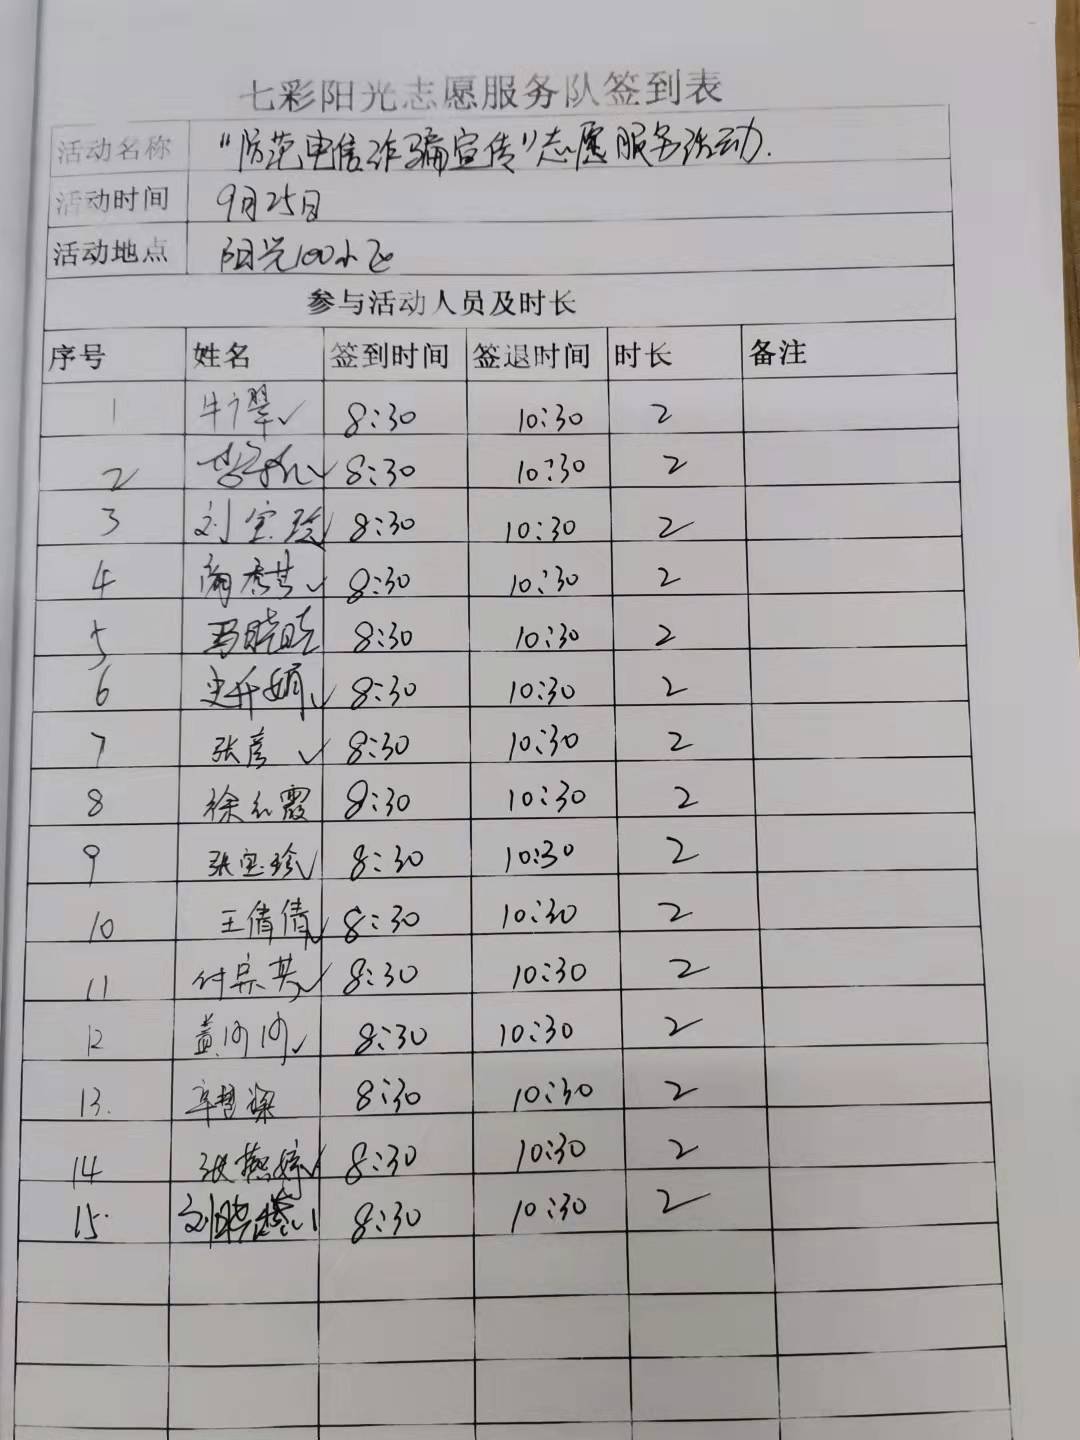 七彩阳光志愿服务队签到表
活动名称 “防范电信诈骗宣传”志愿服务活动.
活动时间 9月25日
活动地点 阳光100小区
参与活动人员及时长
序号 姓名 签到时间 签退时间 时长 备注
1 8:30 10:30 2
2 8:30 10:30 2
3 刘宝玲✓ 8:30 10:30 2
4 8:30 10:30 2
5 马晓晓 8:30 10:30 2
6 8:30 10:30 2
7 张彦 ✓ 8:30 10:30 2
8 徐红霞 8:30 10:30 2
9 张宝珍✓ 8:30 10:30 2
10 王倩倩✓ 8:30 10:30 2
11 付宗英✓ 8:30 10:30 2
12 黄河河✓ 8:30 10:30 2
13. 8:30 10:30 2
14 8:30 10:30 2
15. 8:30 10:30 2